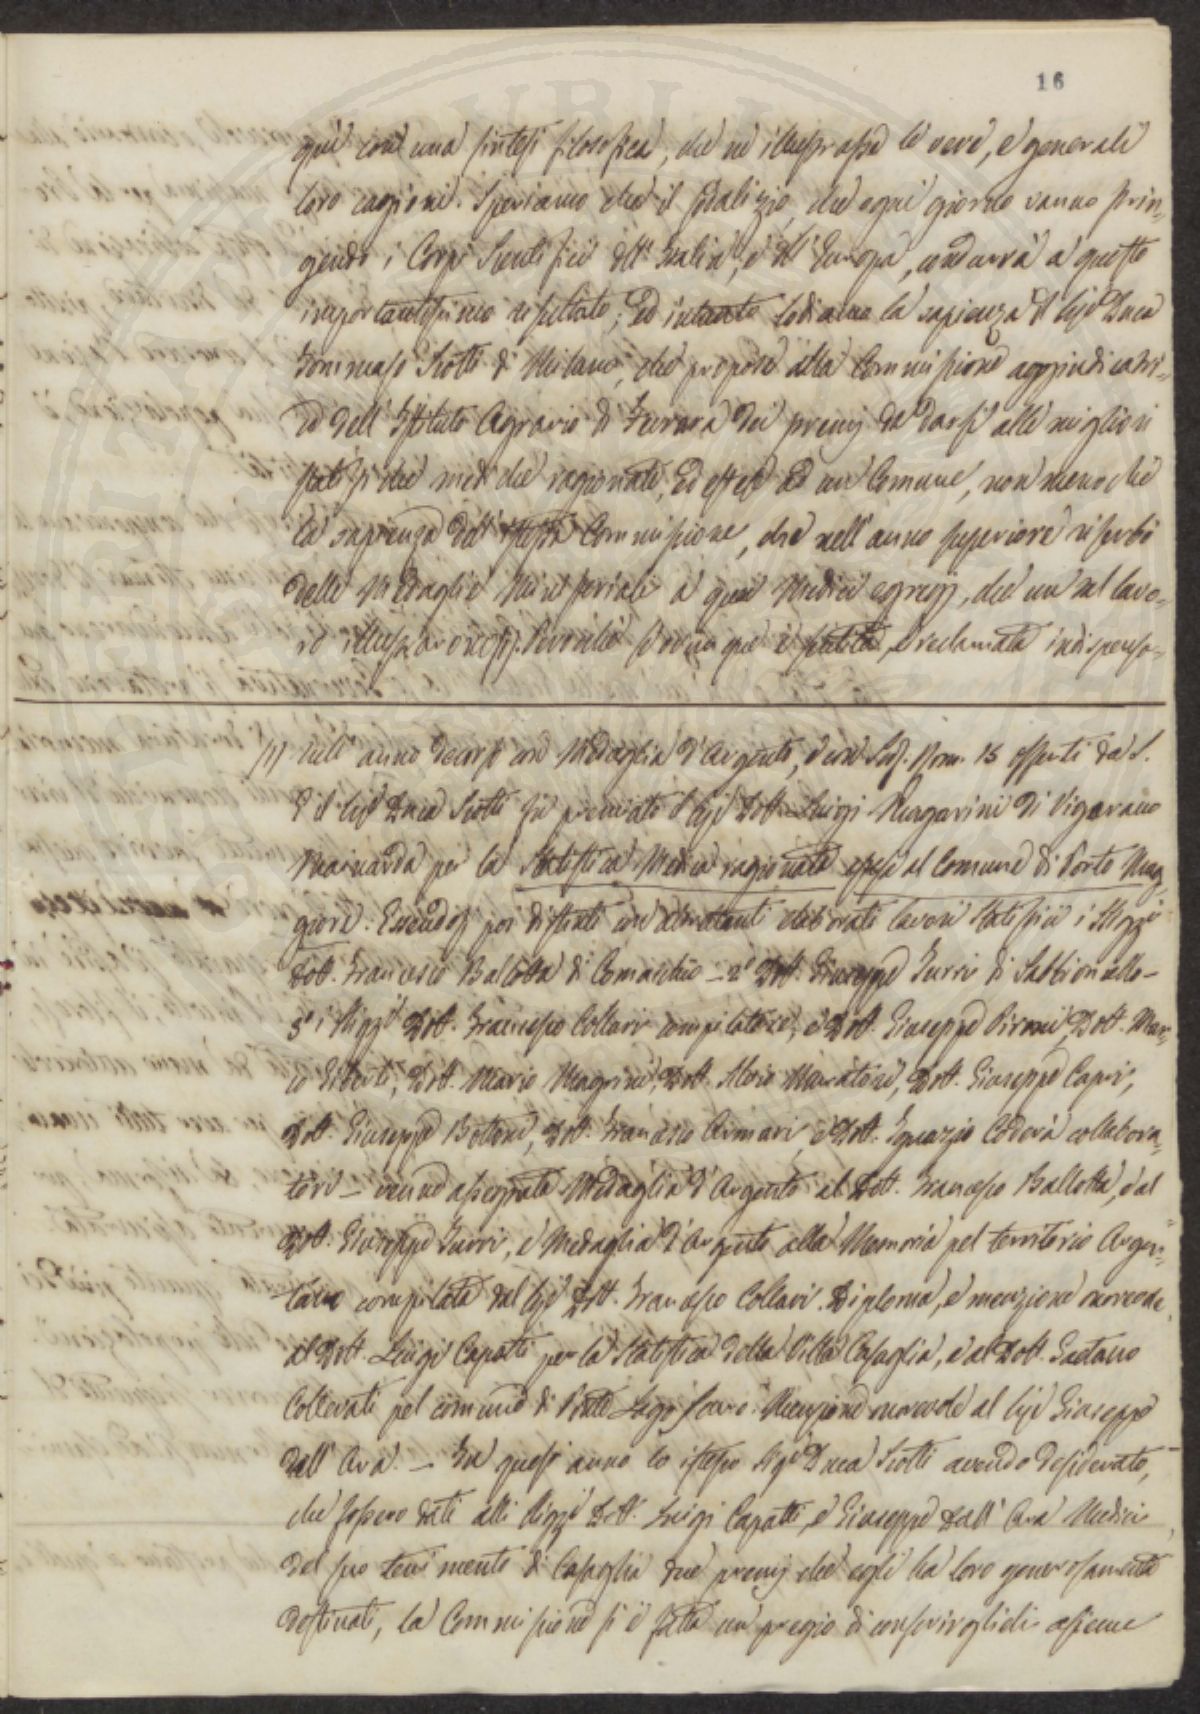 16
quì con una sintesi filosofica, che ne illustrasse le vere, e generali
loro cagioni. Speriamo che il sodalizio, che ogni giorno vanno strin-
gendo i Corpi Scientifici dell'Italia, e dell'Europa, condurrà a questo
importantissimo risultato; ed intanto lodiamo la sapienza del Sig.e Duca
Tommaso Scotti di Milano, che propose alla Commissione aggiudicatri-
ce dell'Istituto Agrario di Ferrara dei premj da darsi alle migliori
statistiche mediche ragionate, ed estese ad un Comune, non meno che
la sapienza dell'istessa Commissione, che nell'anno superiore riserbò
delle Medaglie Ministeriali a quei Medici egregj, che un tal lavo-
ro illustrarono (1). Perocchè dovunque è sentita, e reclamata indispensa-
(1) Nell'anno decorso con Medaglia d'Argento, e con Scudi Rom. 15 offerti da S.
E il Sig.e Duca Scotti fù premiato il Sig.e Dott. Luigi Magarini di Vigarano
Mainarda per la Statistica Medica ragionata estesa al Comune di Porto Mag-
giore. Essendosi poi distinti con altrettanti elaborati lavori Statistici i Sigg.i
Dott. Francesco Ballotta di Comacchio – 2.° Dott. Giuseppe Turri di Sabbioncello –
3.° i Sigg.i Dott. Francesco Collari compilatore, e Dott. Giuseppe Dott. Mar-
co Dott. Mario Magrini, Dott. Dott. Giuseppe Capri,
Dott. Giuseppe Bottoni, Dott. Francesco Armari, e Dott. Ignazio Codecà collabora-
tori – venne assegnata Medaglia d'Argento al Dott. Francesco Ballotta, e al
Dott. Giuseppe Turri, e Medaglia d'Argento alla Memoria pel territorio Argen-
tano compilata dal Sig.e Dott. Francesco Collari. Diploma, e menzione onorevole
al Dott. Luigi Capatti per la Statistica della Villa Casaglia, e al Dott. Gaetano
Collevati pel comune di Ponte Lago Scuro. Menzione onorevole al Sig.e Giuseppe
Dall'Ara. – In quest'anno lo istesso Sig.e Duca Scotti avendo desiderato,
che fossero dati alli Sigg.i Dott. Luigi Capatti, e Giuseppe Dall'Ara Medici
del suo tenimento di Casaglia due premj che egli ha loro generosamente
destinati, la Commissione si è fatta un pregio di conferirglieli assieme